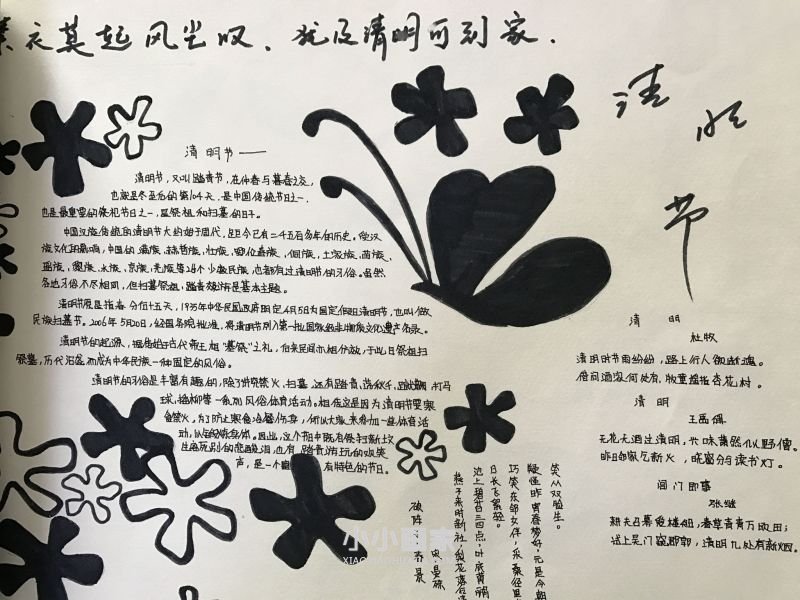 素衣莫起风尘叹，犹及清明可到家.
清明节
清明节——
清明节，又叫踏青节，在仲春与暮春之交，
也就是冬至后的第104天，是中国传统节日之一，
也是最重要的祭祀节日之一，是祭祖和扫墓的日子。
中国汉族传统的清明节大约始于周代，距今已有二千五百多年的历史。受汉
族文化的影响，中国的满族、赫哲族、壮族、鄂伦春族、侗族、土家族、苗族、
瑶族、黎族、水族、京族、羌族等24个少数民族，也都有过清明节的习俗。虽然
各地习俗不尽相同，但扫墓祭祖、踏青郊游是基本主题。
清明节原是指春分后十五天，1935年中华民国政府明定4月5日为国定假日清明节，也叫做
民族扫墓节。2006年5月20日，经国务院批准，将清明节列入第一批国家级非物质文化遗产名录。
清明节的起源，据传始于古代帝王将相“墓祭”之礼，后来民间亦相仿效，于此日祭祖扫
墓，历代沿袭而成为中华民族一种固定的风俗。
清明节的习俗是丰富有趣的，除了讲究禁火、扫墓，还有踏青、荡秋千、蹴鞠、打马
球、插柳等一系列风俗体育活动。相传这是因为清明节要寒
食禁火，为了防止寒食冷餐伤身，所以大家来参加一些体育活
动，以锻炼身体。因此，这个节日中既有祭扫新坟
生离死别的悲酸泪，也有踏青游玩的欢笑
声，是一个 有特色的节日。
清 明
杜牧
清明时节雨纷纷，路上行人欲断魂。
借问酒家何处有，牧童遥指杏花村。
清 明
王禹偁
无花无酒过清明，兴味萧然似野僧。
昨日邻家乞新火，晓窗分与读书灯。
闾门即事
张继
耕夫召募爱楼船，春草青青万顷田；
试上吴门窥郡郭，清明几处有新烟。
破阵 春景
晏殊
燕子来时新社，梨花落后清
池上碧苔三四点，叶底黄鹂
日长飞絮轻。
巧笑东邻女伴，采桑径里
疑怪昨宵春梦好，元是今朝
笑从双脸生。
小小画家